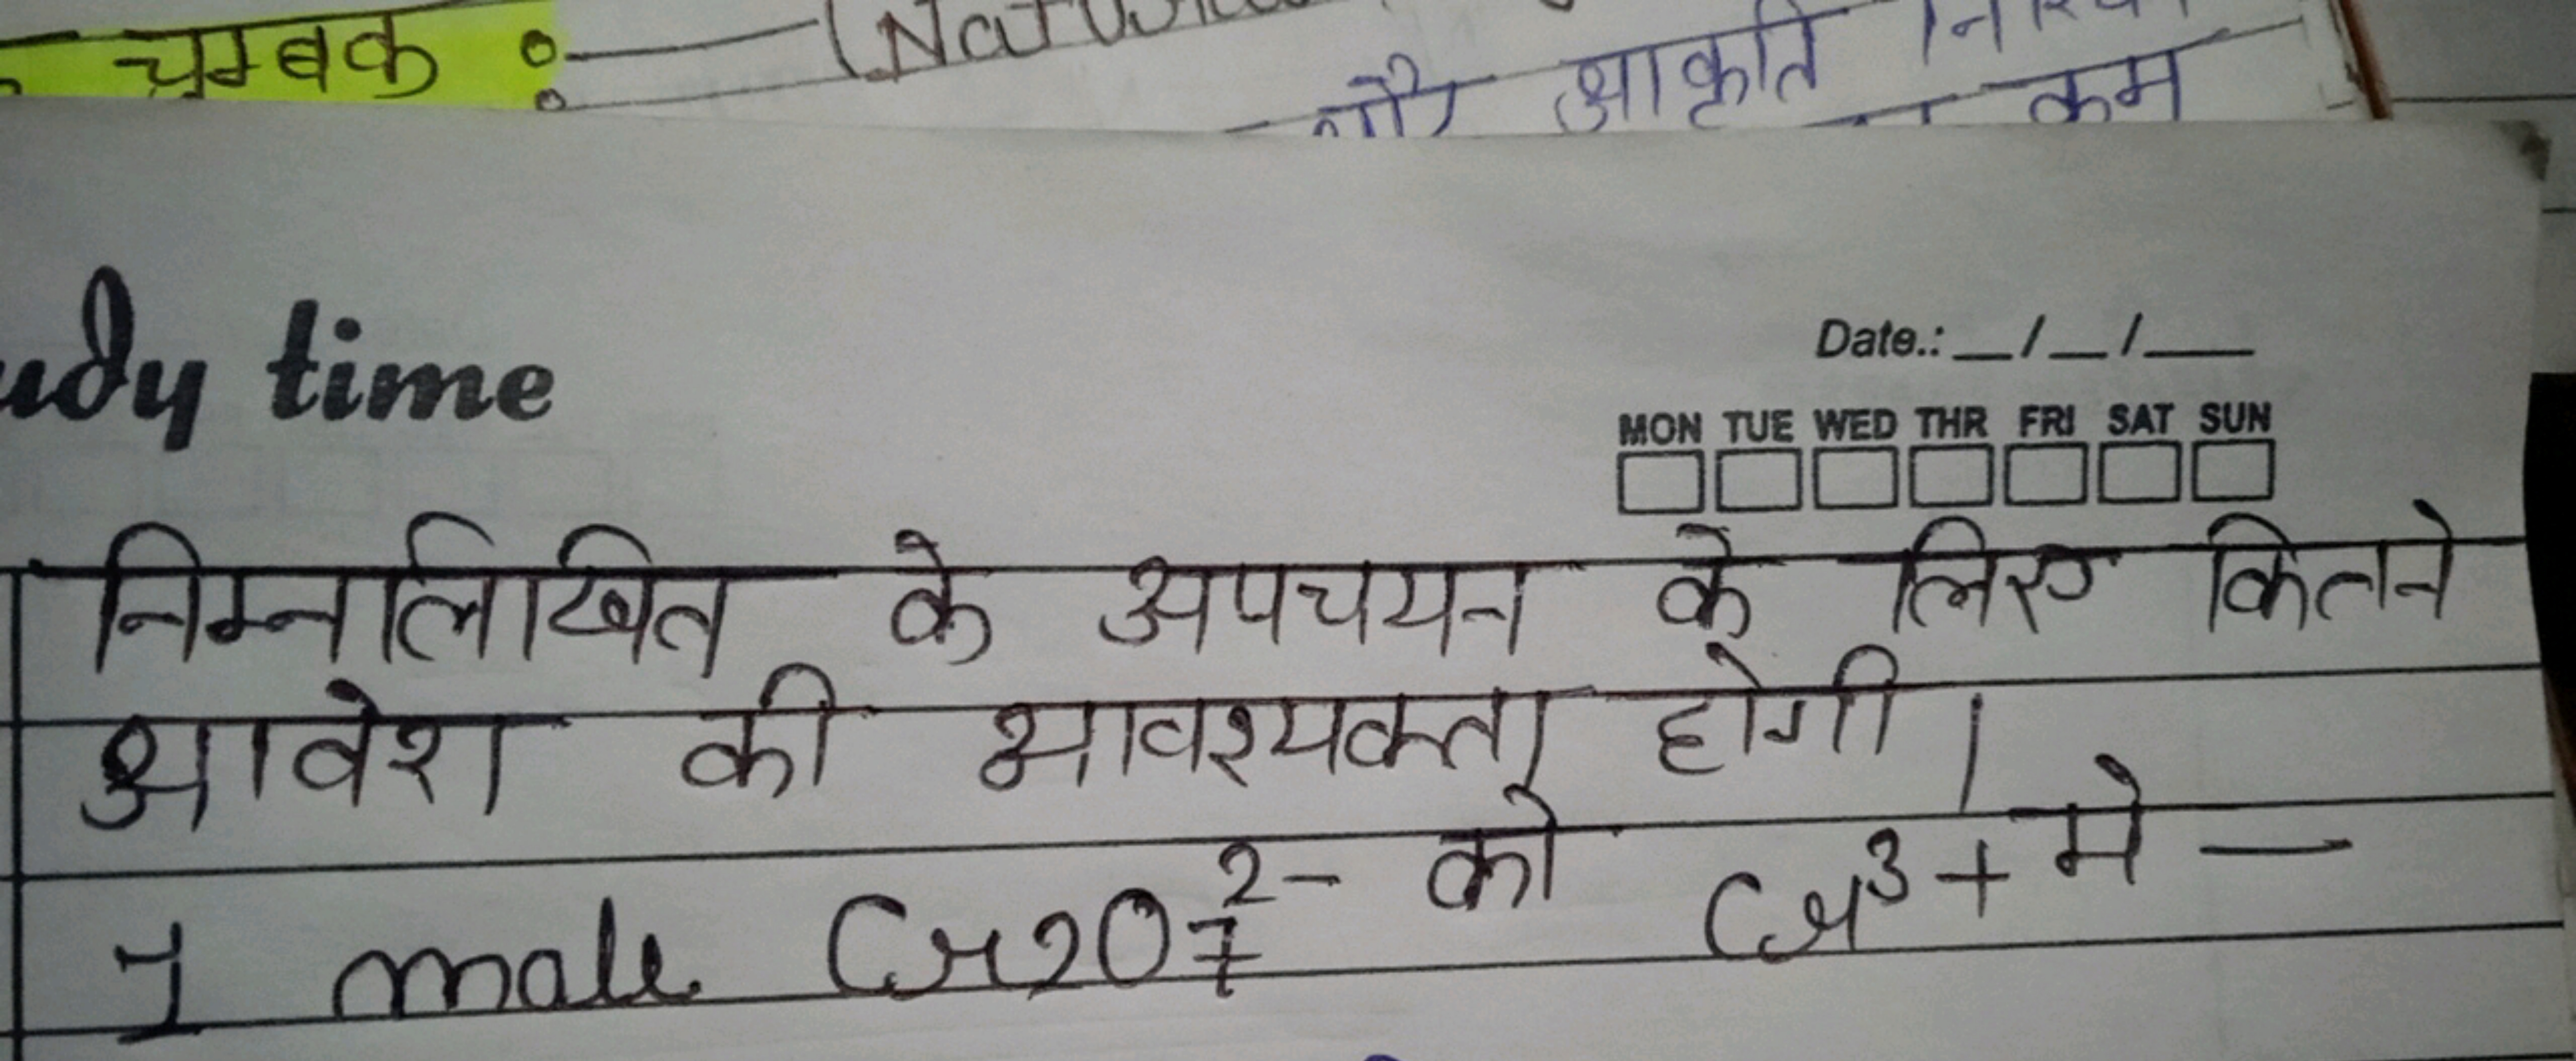 चुम्बक :—
और आकृति
कम
udy time
Date.: __/__/___
MON TUE WED THR FRI SAT SUN
निम्नलिखित के अपचयन के लिए कितने
आवेश की आवश्यकता होगी।
1 mole Cr2O7^2- को Cr^3+ मे —